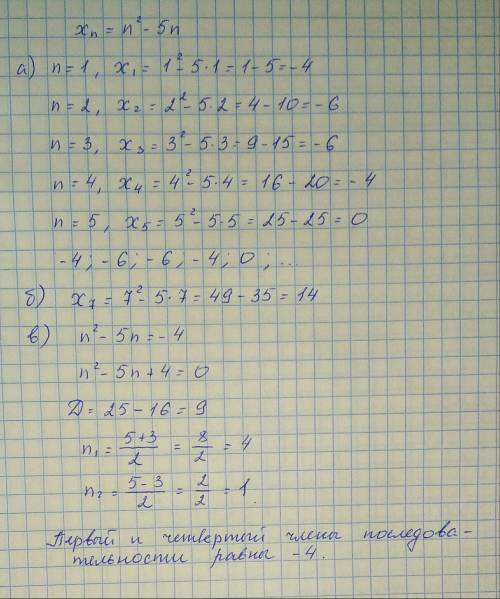 xₙ = n² - 5n
а) n = 1, x₁ = 1² - 5·1 = 1 - 5 = -4
n = 2, x₂ = 2² - 5·2 = 4 - 10 = -6
n = 3, x₃ = 3² - 5·3 = 9 - 15 = -6
n = 4, x₄ = 4² - 5·4 = 16 - 20 = -4
n = 5, x₅ = 5² - 5·5 = 25 - 25 = 0
-4; -6; -6; -4; 0; ...
б) x₇ = 7² - 5·7 = 49 - 35 = 14
в) n² - 5n = -4
n² - 5n + 4 = 0
Д = 25 - 16 = 9
n₁ = (5+3)/2 = 8/2 = 4
n₂ = (5-3)/2 = 2/2 = 1.
Первый и четвертый члены последова-
тельности равны -4.